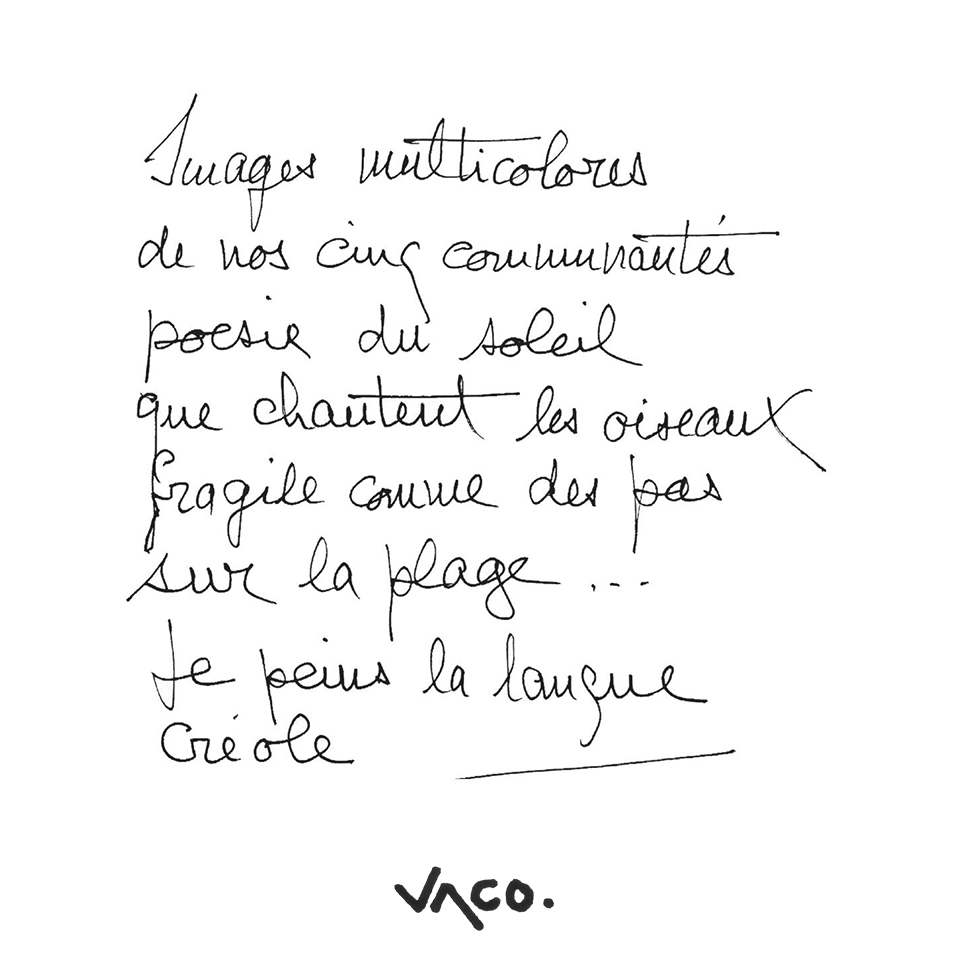 Images multicolores
de nos cinq communautés
poesie du soleil
que chantent les oiseaux
fragile comme des pas
sur la plage ...
Je peins la langue
Créole
VACO.